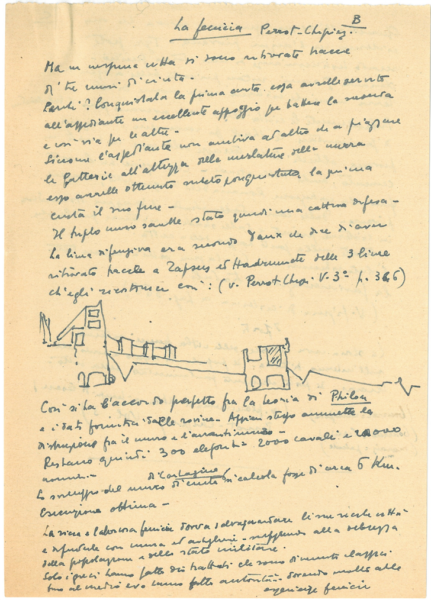 B
La fenicia Perrot-Chipiez
Ma in nessuna città si sono ritrovate tracce
di tre muri di cinta.
Perché? Conquistata la prima cinta cosa avrebbe servito
all'assediante un eccellente appoggio per battere la seconda
e così via per le altre.
Siccome l'assediante non ambiva ad altro che a piazzare
le batterie all'altezza delle merlature delle mura
esso avrebbe ottenuto subito conquistata la prima
cinta il suo fine -
Il triplo muro sarebbe stato quindi una cattiva difesa -
La linea difensiva era secondo Daux che dice di aver
ritrovato tracce a Tapsus ed Hadrumete delle 3 linee
ch'egli ricostruisce così: (v. Perrot-Chip. V. 3° p. 346)
Così si ha l'accordo perfetto fra la teoria di Philon
e i dati forniti dalle rovine - Appiani stesso ammette la
distinzione fra il muro e l'avantimuro -
Restano quindi 300 elefanti 2000 cavalli e
uomini - di Cartagine
Lo sviluppo del muro di cinta si calcola forse di circa 6 Km.
Esecuzione ottima -
La ricca e laboriosa fenicia doveva salvaguardare le sue ricche città
e difenderle con mura ed artiglierie - supplendo alla debolezza
della popolazione e dello stato militare.
Solo i greci hanno fatto dei trattati che sono divenuti classici
fino al medio evo hanno fatto autorità - dovendo molto alle
esperienze fenicie